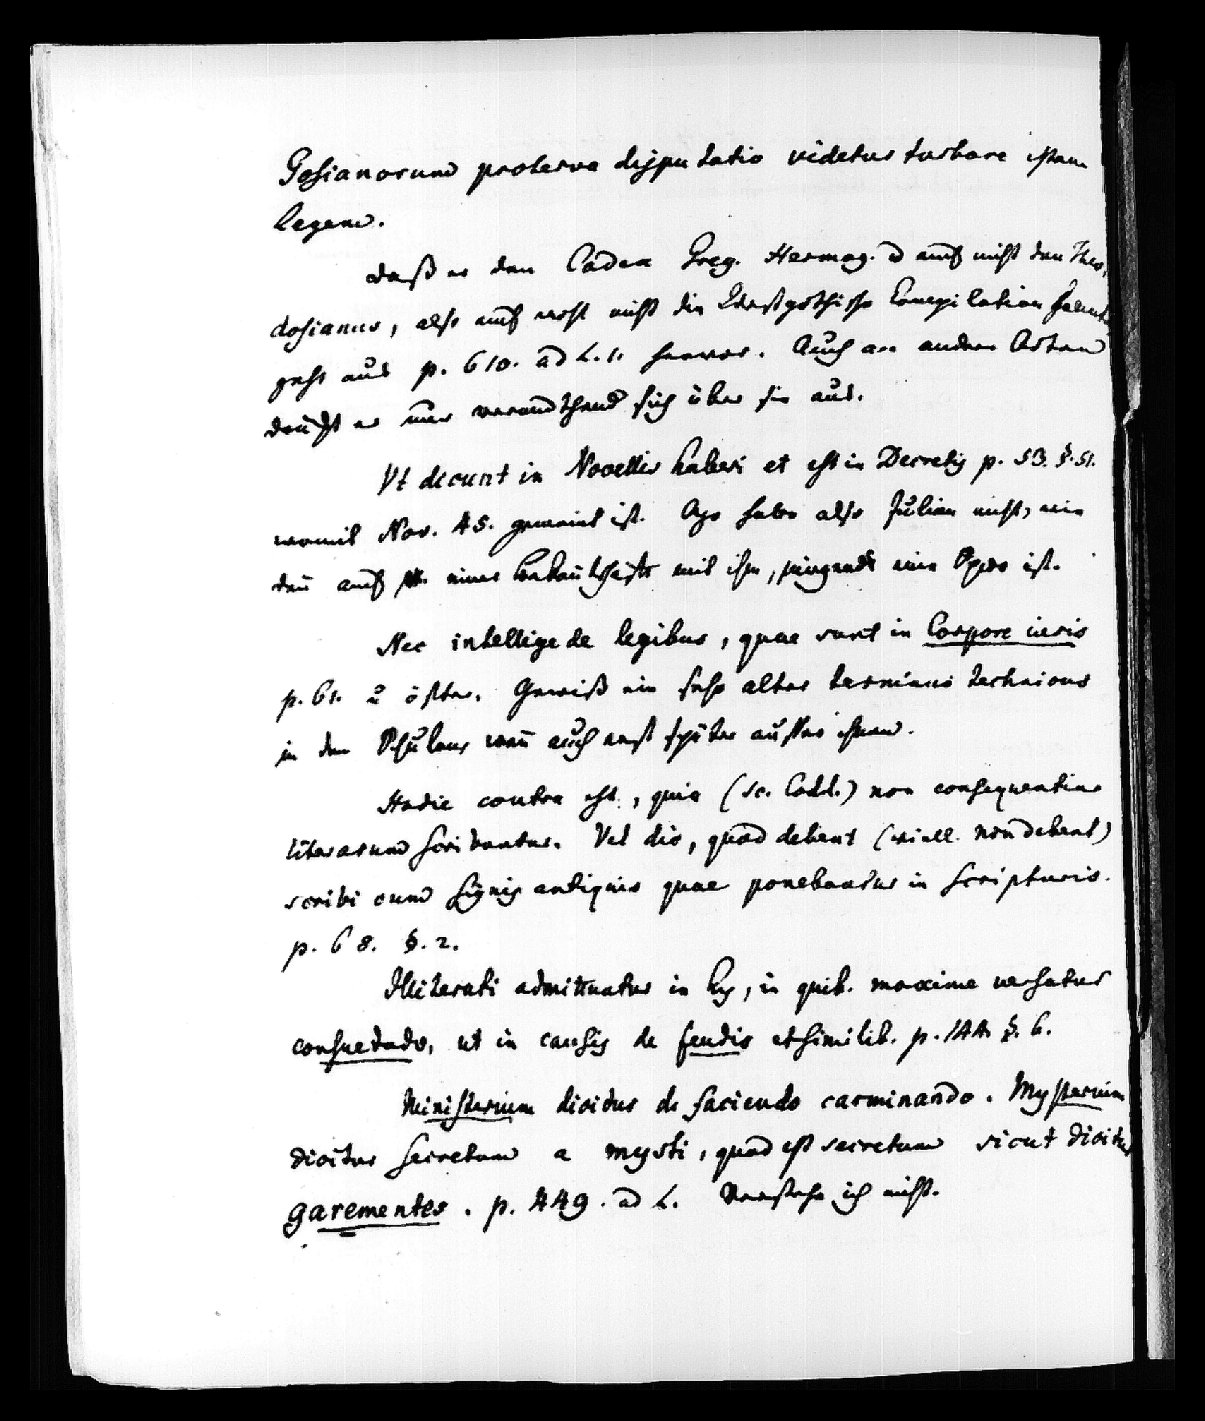 Gosianorum proterva disputatio videtur turbare istam
legem.
Daß er den Codex Greg. Hermog. u auch nicht den Theo-
dosianus, also auch wohl nicht die Westgothische Compilation kannte,
geht aus p. 610. ad L. 1. hervor. Auch an andern Orten
drückt er nur verachtend sich über sie aus.
Vt dicunt in Novellis haberi et est in Decretis p. 53. §. 51.
womit Nov. 45. gemeint ist. Azo habe also Julian nicht, wie
den auch einer Bekantschaft mit ihm, nirgends eine Spur ist.
Nec intellige de legibus, quae sunt in Corpore iuris
p. 61. u öfter. Gewiß ein sehr alter terminus technicus
in den Schulen wen auch erst später ausser ihnen.
Hodie contra est, quia (sc. Codd.) non consequentiae
literarum scribuntur. Vel dic, quod debent (viell. non debent)
scribi cum signis antiquis quae ponebantur in scripturis.
p. 68. §. 2.
Illiterati admittuntur in his, in quib. maxime versatur
consuetudo, ut in causis de feudis et similib. p. 144. §. 6.
Ministerium dicitur de faciendo carminando. Mysterium
dicitur secretum a mysti, quod est secretum sicut dicitur
garementes. p. 449. ad L. Verstehe ich nicht.